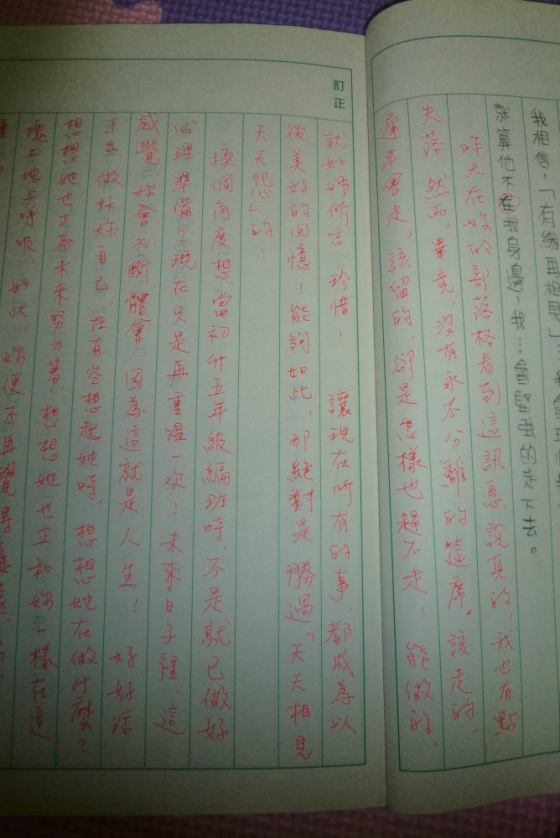 我相信，「有緣再相見」，
就算他不在我身邊，我…會堅強的走下去。
昨天在妳的部落格看到這訊息，說真的，我也有點
失落。然而，畢竟，沒有永不分離的筵席。該走的，
遲早會走，該留的，卻是怎樣也趕不走！能做的，
訂正
就如妳所言：珍惜！讓現在所有的事，都成為以
後美好的回憶！能夠如此，那絕對是勝過「天天相見
天天怨」的！
換個角度想，當初升五年級編班時，不是就已做好
心理準備？現在只是再重溫一次！未來日子裡，這
感覺，妳會不斷體會，因為這就是人生！好好活
下去，做好妳自己，在有空想起她時，想想她在做什麼？
想想她也正為未來努力著，想想她也正和妳一樣在這
塊土地上呼吸，如此，妳便不再覺得